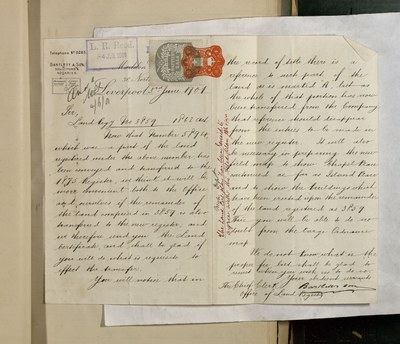 Telephone No 5095
BARTLETT & SON,
SOLICITORS,
LIVERPOOL.
L. R. Feal.
4 JUN 1901
Liverpool 3rd June 1901
Sir,
Land Regy No 3859
Now that Number
which was a part of the land
registered under the above number has
been merged and transferred to the
1875 Register, we think it will be
more convenient both to the Office
and ourselves if the remainder of
the Land comprised in 3859 is also
transferred to the new register, and
we therefore send you the Land
Certificate, and shall be glad if
you will do what is requisite to
effect the transfer.
You will notice that in
the record of title there is a
reference to such part of the
land as is marked B, but as
the whole of that portion has now
been transferred from the Company
that reference should disappear
from the entries to be made in
the new register. It will also
be necessary in preparing the new
Land map to show Chapel Road
continued as far as Island Road
and to show the buildings which
have been erected upon the remainder
of the land registered as 3859
this you will be able to do no
doubt from the large Ordnance
map.
We do not know what is the
proper fee but shall be glad to
remit when you ask us to do so.
Your obedient servants
Bartlett & Son
The Chief Clerk
Office of Land Registry